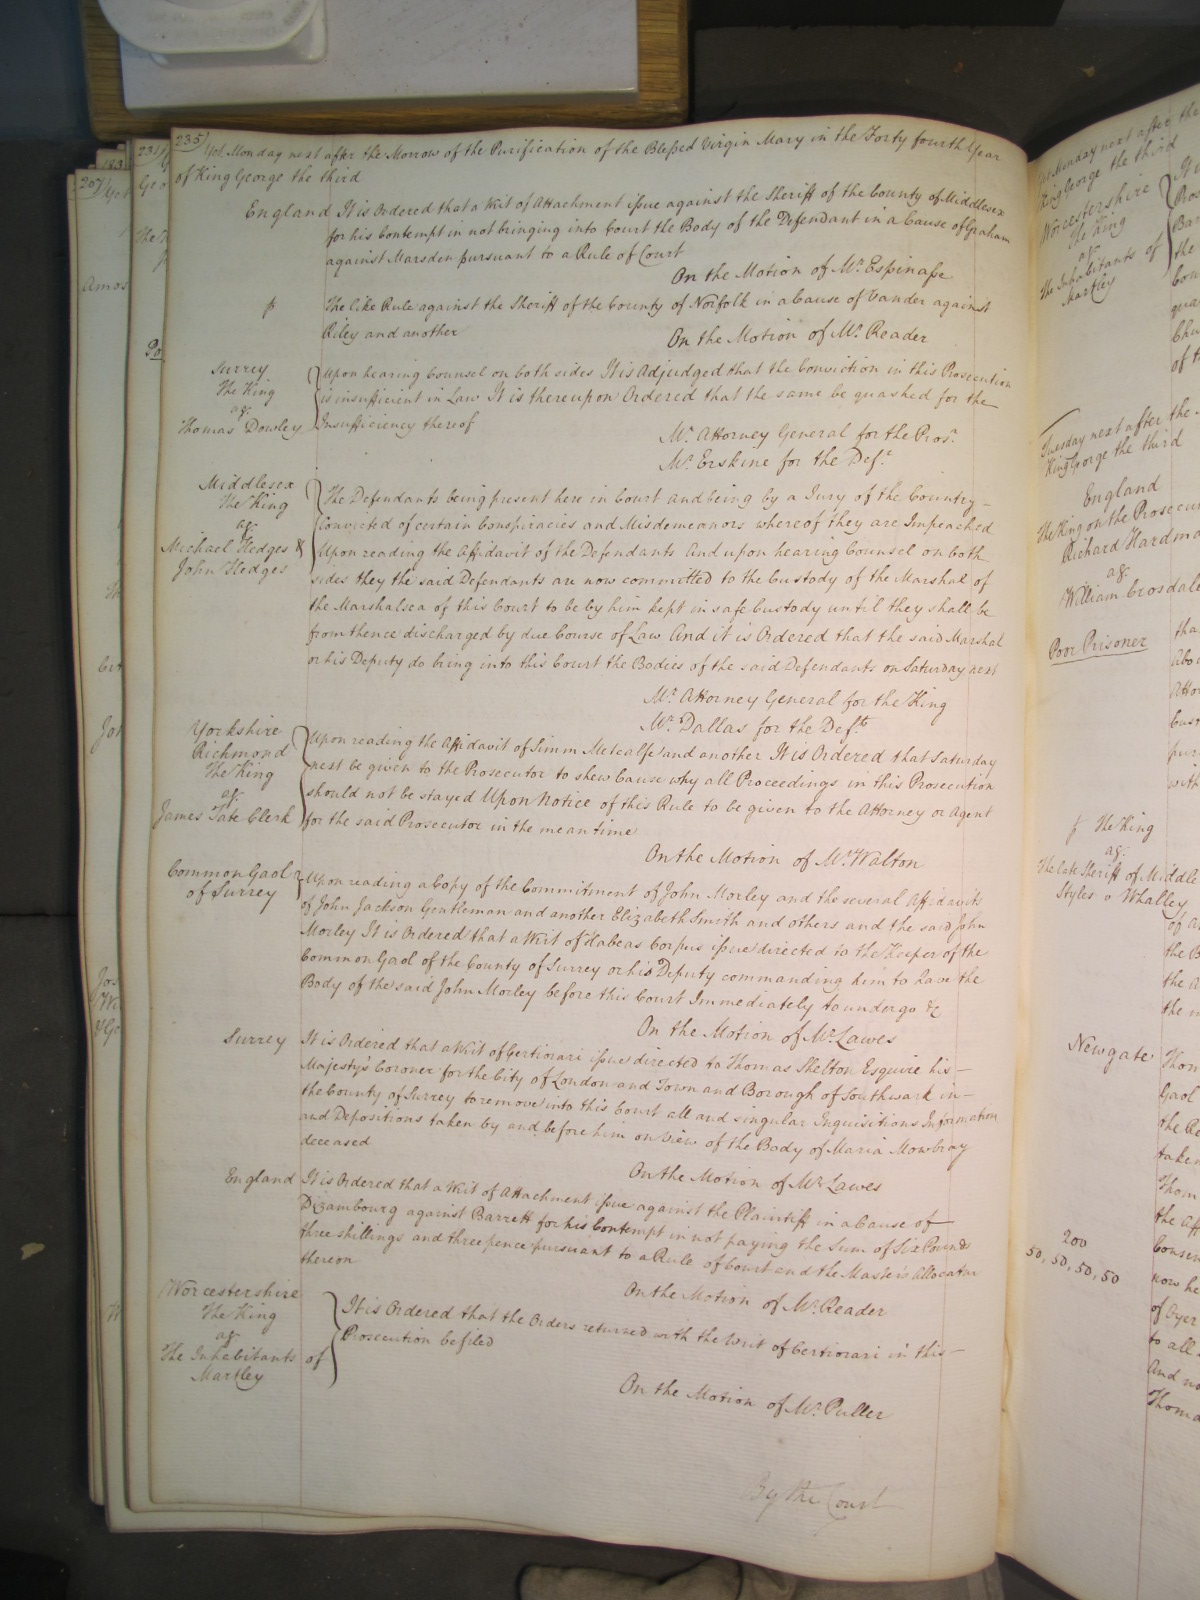 235/ Yet Monday next after the Morrow of the Purification of the Blessed Virgin Mary in the Forty fourth Year
of King George the third
England It is Ordered that a Writ of Attachment issue against the Sheriff of the County of Middlesex
for his Contempt in not bringing into Court the Body of the Defendant in a Cause of Graham
against Marsden pursuant to a Rule of Court
On the Motion of Mr. Espinasse
p The like Rule against the Sheriff of the County of Norfolk in a Cause of Vander against
Riley and another
On the Motion of Mr. Reader
Surrey
The King
agt.
Thomas Dowley
Upon hearing Counsel on both sides It is Adjudged that the Conviction in this Prosecution
is insufficient in Law It is thereupon Ordered that the same be quashed for the
Insufficiency thereof
Mr. Attorney General for the Pros.r
Mr. Erskine for the Def.t
Middlesex
The King
agt.
Michael Hedges &
John Hedges
The Defendants being present here in Court and being by a Jury of the Country
Convicted of certain Conspiracies and Misdemeanors whereof they are Impeached
Upon reading the Affidavit of the Defendants And upon hearing Counsel on both
sides they the said Defendants are now committed to the Custody of the Marshal of
the Marshalsea of this Court to be by him kept in safe Custody until they shall be
from thence discharged by due Course of Law And it is Ordered that the said Marshal
or his Deputy do bring into this Court the Bodies of the said Defendants on Saturday next
Mr. Attorney General for the King
Mr. Dallas for the Def.ts
Yorkshire
Richmond
The King
agt.
James Tate Clerk
Upon reading the Affidavit of Simm Metcalfe and another It is Ordered that Saturday
next be given to the Prosecutor to shew Cause why all Proceedings in this Prosecution
should not be stayed Upon Notice of this Rule to be given to the Attorney or Agent
for the said Prosecutor in the mean time
On the Motion of Mr. Walton
Common Gaol
of Surrey
Upon reading a Copy of the Commitment of John Morley and the several Affidavits
of John Jackson Gentleman and another Elizabeth Smith and others and the said John
Morley It is Ordered that a Writ of Habeas Corpus issue directed to the Keeper of the
Common Gaol of the County of Surrey or his Deputy commanding him to have the
Body of the said John Morley before this Court Immediately to undergo &c
On the Motion of Mr. Lawes
Surrey It is Ordered that a Writ of Certiorari issue directed to Thomas Shelton Esquire his
Majesty's Coroner for the City of London and Town and Borough of Southwark in
the County of Surrey to remove into this Court all and singular Inquisitions Information
and Depositions taken by and before him on view of the Body of Maria Mowbray
deceased
On the Motion of Mr. Lawes
England It is Ordered that a Writ of Attachment issue against the Plaintiff in a Cause of
Dizambourg against Barrett for his Contempt in not paying the Sum of Six Pounds
three shillings and three pence pursuant to a Rule of Court and the Master's Allocatur
thereon
On the Motion of Mr. Reader
Worcestershire
The King
agt.
The Inhabitants of
Martley
It is Ordered that the Orders returned with the Writ of Certiorari in this
Prosecution be filed
On the Motion of Mr. Puller
By the Court
Monday next after the
King George the third
Worcestershire
The King
agt.
The Inhabitants of
Martley
Tuesday next after the
King George the third
England
The King on the Prosecu
Richard Hardma
agt.
William Crosdale
Poor Prisoner
p The King
agt.
The late Sheriff of Middle
Styles v Whalley
Newgate
200
50, 50, 50, 50